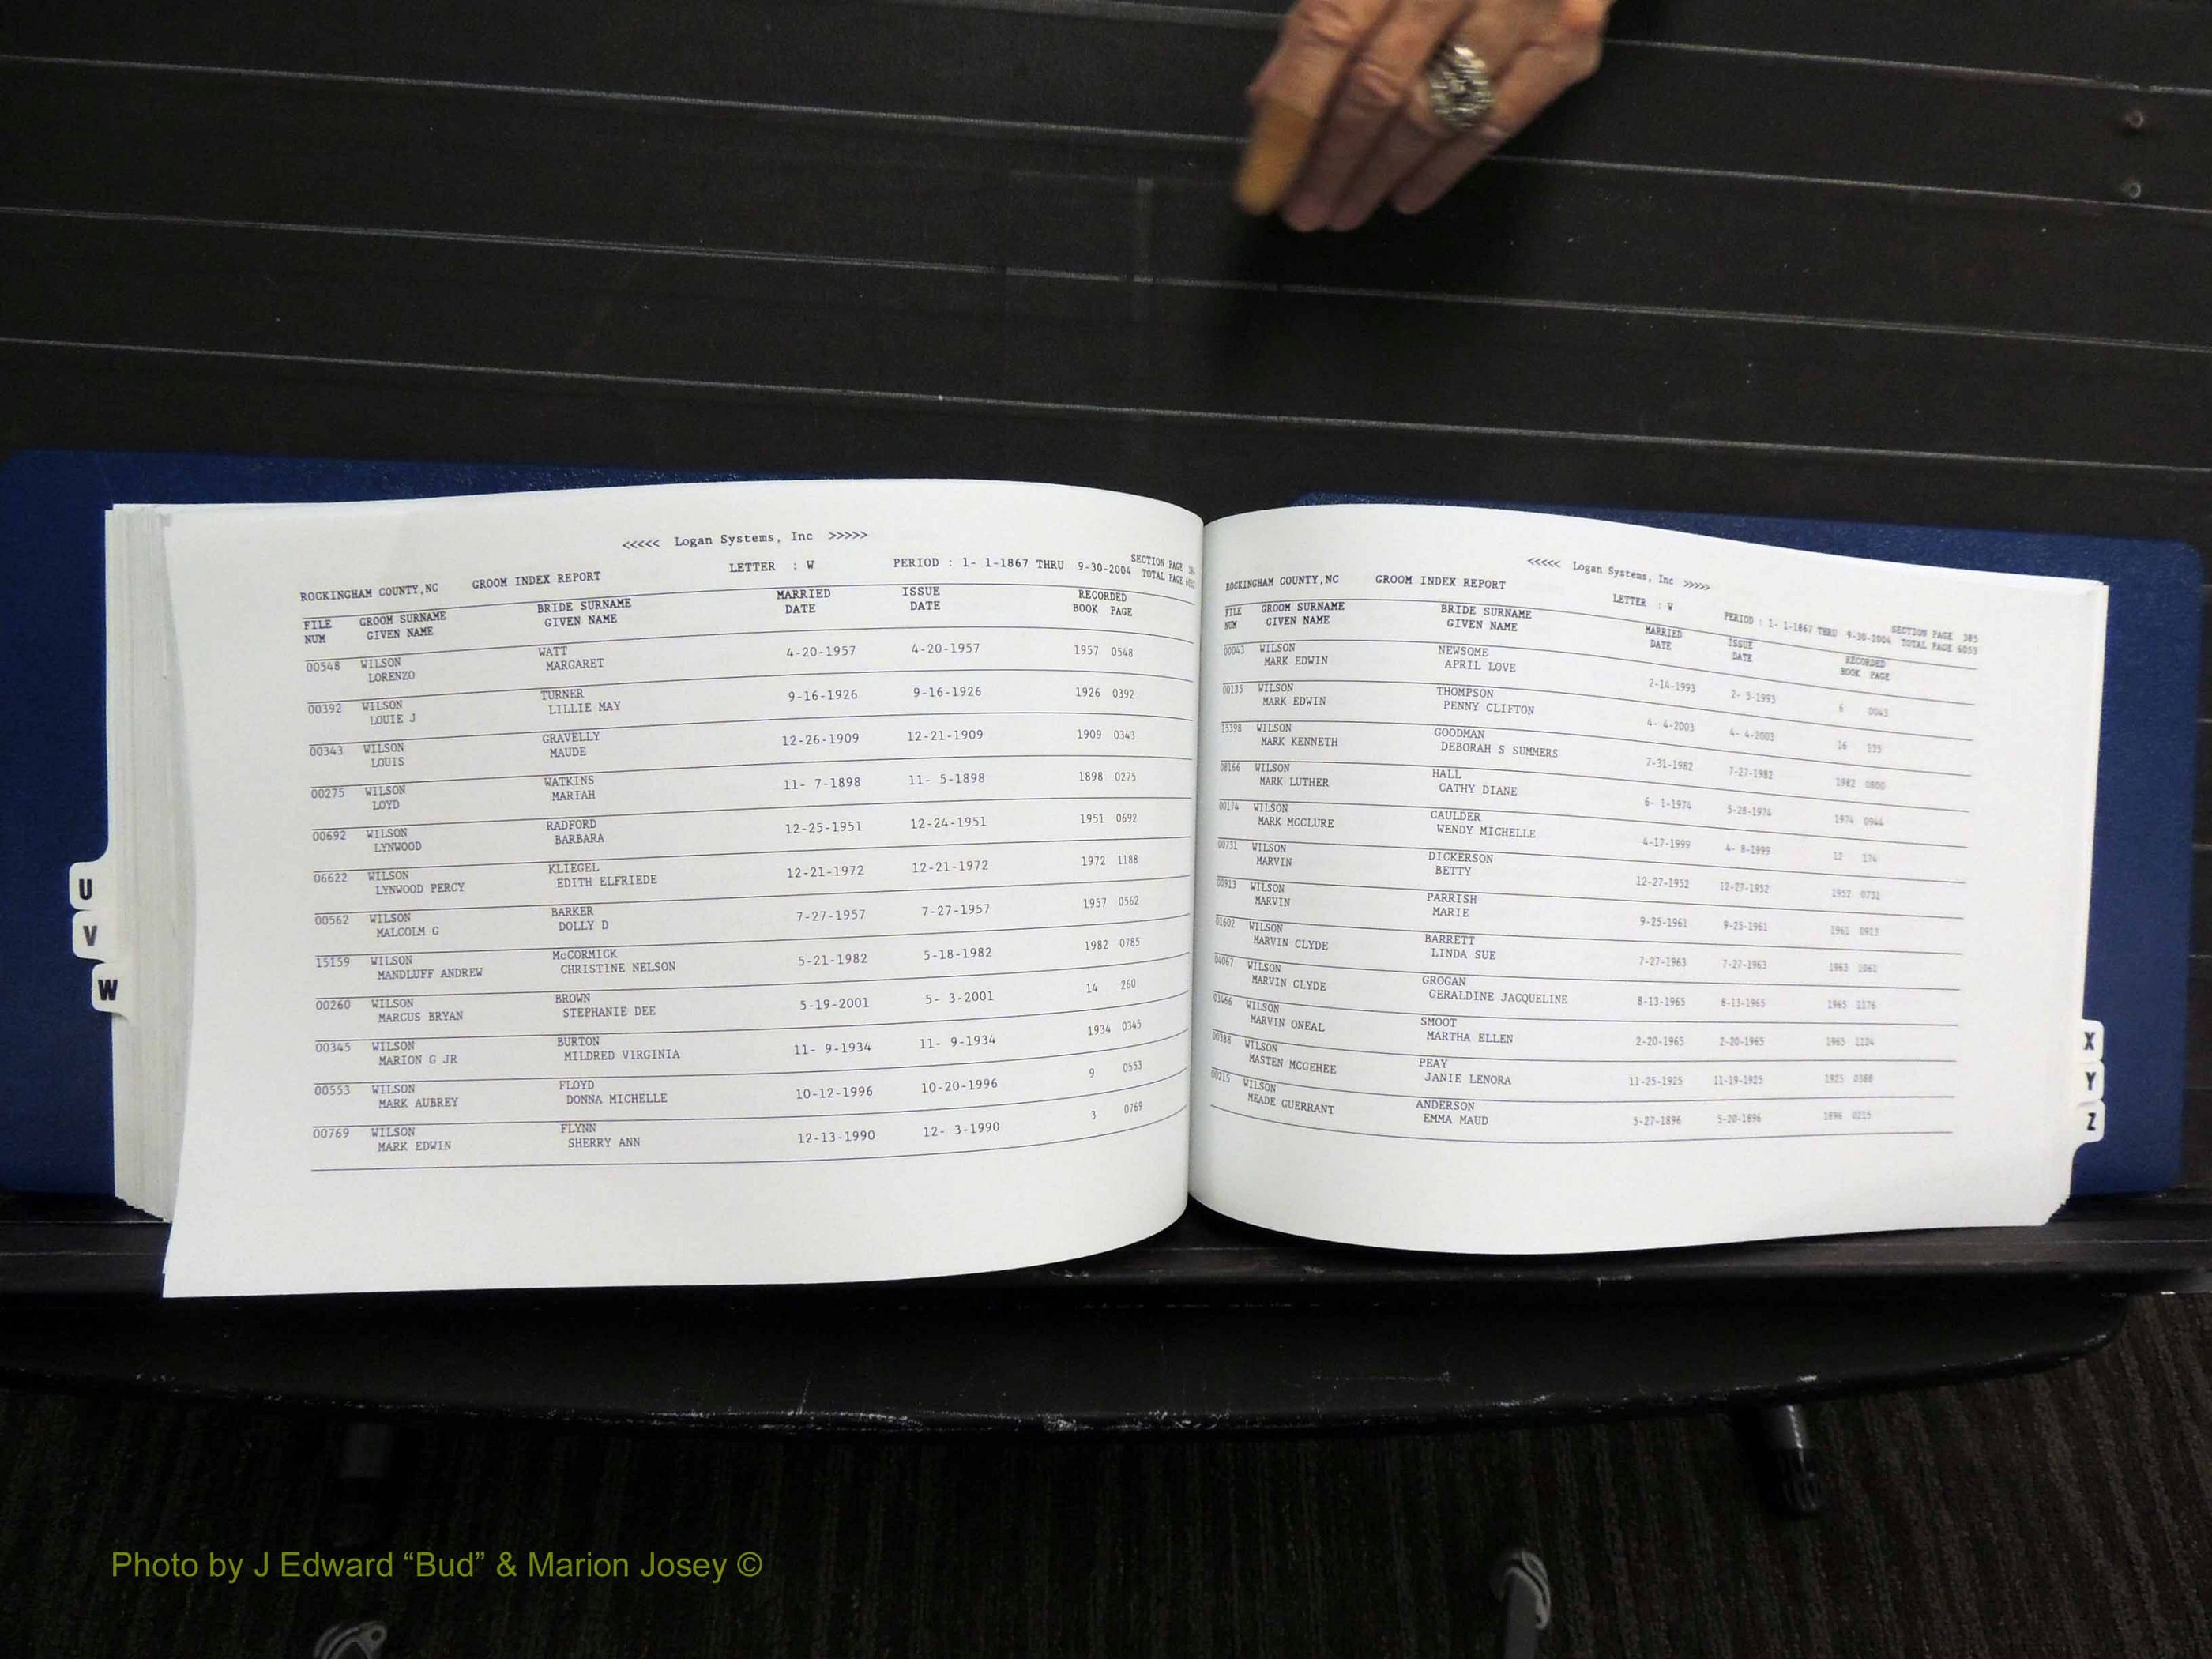 <<<<< Logan Systems, Inc >>>>>
ROCKINGHAM COUNTY,NC GROOM INDEX REPORT LETTER : W PERIOD : 1- 1-1867 THRU 9-30-2004 SECTION PAGE
TOTAL PAGE
FILE GROOM SURNAME BRIDE SURNAME MARRIED ISSUE RECORDED
NUM GIVEN NAME GIVEN NAME DATE DATE BOOK PAGE
00548 WILSON WATT 4-20-1957 4-20-1957 1957 0548
LORENZO MARGARET
00392 WILSON TURNER 9-16-1926 9-16-1926 1926 0392
LOUIE J LILLIE MAY
00343 WILSON GRAVELLY 12-26-1909 12-21-1909 1909 0343
LOUIS MAUDE
00275 WILSON WATKINS 11- 7-1898 11- 5-1898 1898 0275
LOYD MARIAH
00692 WILSON RADFORD 12-25-1951 12-24-1951 1951 0692
LYNWOOD BARBARA
06622 WILSON KLIEGEL 12-21-1972 12-21-1972 1972 1188
LYNWOOD PERCY EDITH ELFRIEDE
00562 WILSON BARKER 7-27-1957 7-27-1957 1957 0562
MALCOLM G DOLLY D
15159 WILSON McCORMICK 5-21-1982 5-18-1982 1982 0785
MANDLUFF ANDREW CHRISTINE NELSON
00260 WILSON BROWN 5-19-2001 5- 3-2001 14 260
MARCUS BRYAN STEPHANIE DEE
00345 WILSON BURTON 11- 9-1934 11- 9-1934 1934 0345
MARION G JR MILDRED VIRGINIA
00553 WILSON FLOYD 10-12-1996 10-20-1996 9 0553
MARK AUBREY DONNA MICHELLE
00769 WILSON FLYNN 12-13-1990 12- 3-1990 3 0769
MARK EDWIN SHERRY ANN
U
V
W
<<<<< Logan Systems, Inc >>>>>
ROCKINGHAM COUNTY,NC GROOM INDEX REPORT LETTER : W PERIOD : 1- 1-1867 THRU 9-30-2004 SECTION PAGE 385
TOTAL PAGE 6053
FILE GROOM SURNAME BRIDE SURNAME MARRIED ISSUE RECORDED
NUM GIVEN NAME GIVEN NAME DATE DATE BOOK PAGE
00043 WILSON NEWSOME 2-14-1993 2- 5-1993 6 0043
MARK EDWIN APRIL LOVE
00135 WILSON THOMPSON 4- 4-2003 4- 4-2003 16 135
MARK EDWIN PENNY CLIFTON
15398 WILSON GOODMAN 7-31-1982 7-27-1982 1982
MARK KENNETH DEBORAH S SUMMERS
08166 WILSON HALL 6- 1-1974 5-28-1974 1974
MARK LUTHER CATHY DIANE
00174 WILSON CAULDER 4-17-1999 4- 8-1999 12 174
MARK MCCLURE WENDY MICHELLE
00731 WILSON DICKERSON 12-27-1952 12-27-1952 1952
MARVIN BETTY
00913 WILSON PARRISH 9-25-1961 9-25-1961 1961 0913
MARVIN MARIE
01602 WILSON BARRETT 7-27-1963 7-27-1963 1963
MARVIN CLYDE LINDA SUE
04067 WILSON GROGAN 8-13-1965 8-13-1965 1965
MARVIN CLYDE GERALDINE JACQUELINE
03466 WILSON SMOOT 2-20-1965 2-20-1965 1965
MARVIN ONEAL MARTHA ELLEN
00388 WILSON PEAY 11-25-1925 11-19-1925 1925 0388
MASTEN MCGEHEE JANIE LENORA
00215 WILSON ANDERSON 5-27-1896 5-20-1896 1896 0215
MEADE GUERRANT EMMA MAUD
X
Y
Z
Photo by J Edward “Bud” & Marion Josey ©